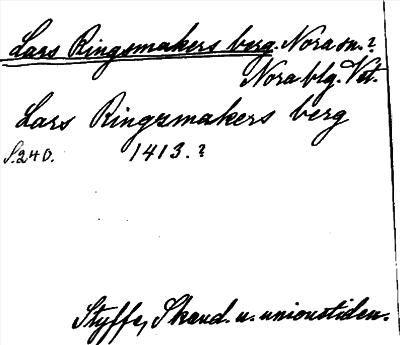 Lars Ringsmakers berg. Nora sn.?
Nora blg. Vst.
Lars Ringzmakers berg
S. 240. 1413.?
Styffe, Skand. u. unionstiden.